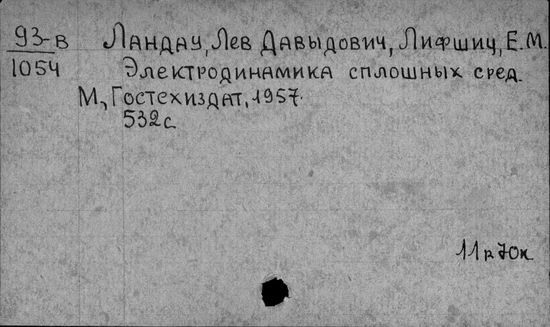 93-в Ландау, Лев Давыдович, Лифшиц, Е.М.
1054 Электродинамика сплошных сред.
М, Гостехиздат, 1957.
532с.
11р70к